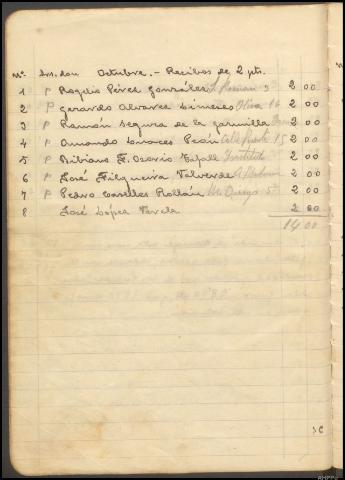 Nº. Srs. don Octubre.- Recibos de 2 pts.
1 P Rogelio Pérez González S. Roman 3 2 00
2 P Gerardo Alvarez Limeses Oliva 16 2 00
3 P Ramón Segura de la Garmilla 2 00
4 P Amando Losoces Peón Calle Puente 15 2 00
5 P Bibiano F. Osorio Tafall Instituto 2 00
6 P José Filgueira Valverde 2 00
7 P Pedro Caselles Rollán 5 2 00
8 José López Varela 2 00
14 00